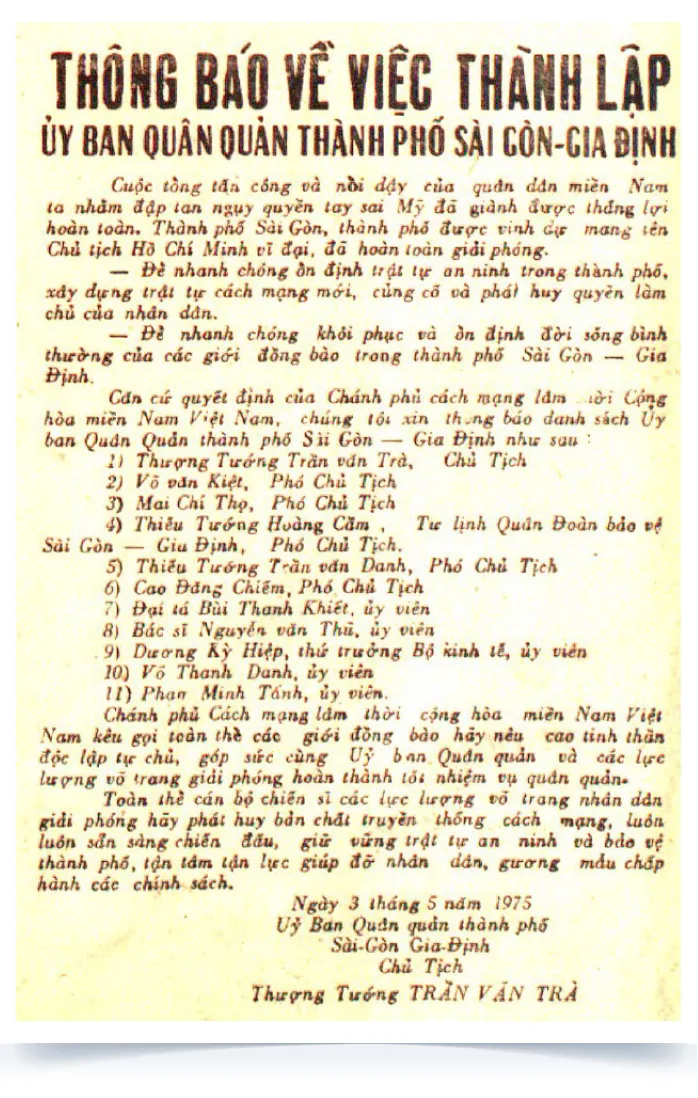 THÔNG BÁO VỀ VIỆC THÀNH LẬP
ỦY BAN QUÂN QUẢN THÀNH PHỐ SÀI GÒN-GIA ĐỊNH
Cuộc tổng tấn công và nổi dậy của quân dân miền Nam
ta nhằm đập tan ngụy quyền tay sai Mỹ đã giành được thắng lợi
hoàn toàn. Thành phố Sài Gòn, thành phố được vinh dự mang tên
Chủ tịch Hồ Chí Minh vĩ đại, đã hoàn toàn giải phóng.
— Để nhanh chóng ổn định trật tự an ninh trong thành phố,
xây dựng trật tự cách mạng mới, củng cố và phát huy quyền làm
chủ của nhân dân.
— Để nhanh chóng khôi phục và ổn định đời sống bình
thường của các giới đồng bào trong thành phố Sài Gòn — Gia
Định.
Căn cứ quyết định của Chánh phủ cách mạng lâm thời Cộng
hòa miền Nam Việt Nam, chúng tôi xin thông báo danh sách Ủy
ban Quân Quản thành phố Sài Gòn — Gia Định như sau :
1) Thượng Tướng Trần văn Trà, Chủ Tịch
2) Võ văn Kiệt, Phó Chủ Tịch
3) Mai Chí Thọ, Phó Chủ Tịch
4) Thiếu Tướng Hoàng Cầm , Tư lịnh Quân Đoàn bảo vệ
Sài Gòn — Gia Định, Phó Chủ Tịch.
5) Thiếu Tướng Trần văn Danh, Phó Chủ Tịch
6) Cao Đăng Chiếm, Phó Chủ Tịch
7) Đại tá Bùi Thanh Khiết, ủy viên
8) Bác sĩ Nguyễn văn Thủ, ủy viên
9) Dương Kỳ Hiệp, thứ trưởng Bộ kinh tế, ủy viên
10) Võ Thanh Danh, ủy viên
11) Phan Minh Tánh, ủy viên.
Chánh phủ Cách mạng lâm thời cộng hòa miền Nam Việt
Nam kêu gọi toàn thể các giới đồng bào hãy nêu cao tinh thần
độc lập tự chủ, góp sức cùng Uỷ ban Quân quản và các lực
lượng võ trang giải phóng hoàn thành tốt nhiệm vụ quân quản.
Toàn thể cán bộ chiến sĩ các lực lượng võ trang nhân dân
giải phóng hãy phát huy bản chất truyền thống cách mạng, luôn
luôn sẵn sàng chiến đấu, giữ vững trật tự an ninh và bảo vệ
thành phố, tận tâm tận lực giúp đỡ nhân dân, gương mẫu chấp
hành các chính sách.
Ngày 3 tháng 5 năm 1975
Uỷ Ban Quân quản thành phố
Sài-Gòn Gia-Định
Chủ Tịch
Thượng Tướng TRẦN VĂN TRÀ